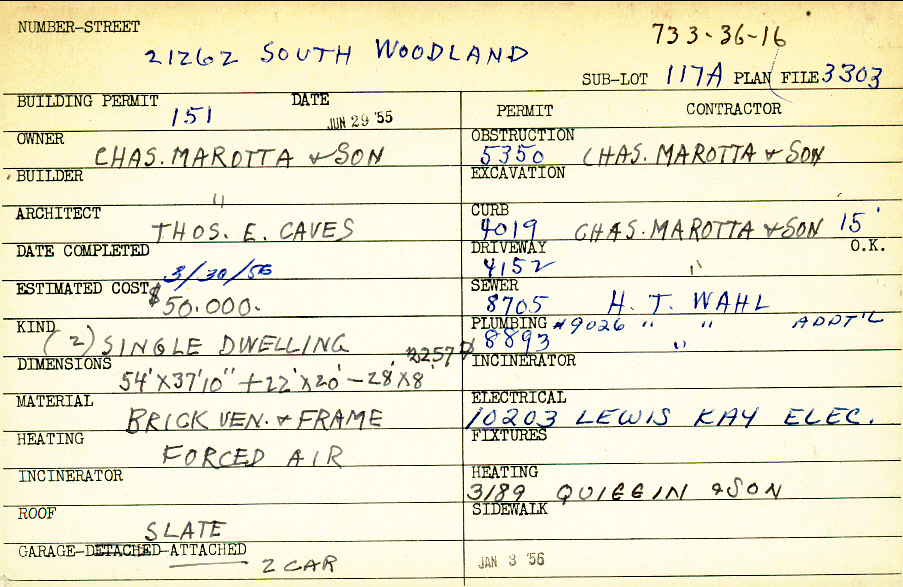 NUMBER-STREET
21262 SOUTH WOODLAND
733-36-16
SUB-LOT 117A PLAN FILE 3303
BUILDING PERMIT 151 DATE JUN 29 '55
PERMIT CONTRACTOR
OWNER CHAS. MAROTTA & SON
OBSTRUCTION 5350 CHAS. MAROTTA & SON
BUILDER "
EXCAVATION
ARCHITECT THOS. E. CAVES
CURB 4019 CHAS. MAROTTA & SON 15'
DATE COMPLETED 3/30/56
DRIVEWAY 4152 " O.K.
ESTIMATED COST $50.000.
SEWER 8705 H. T. WAHL
KIND (2) SINGLE DWELLING
PLUMBING #9026 " " ADDT'L
8893 "
DIMENSIONS 54'X37'10" + 22'X20' - 28'X8'
INCINERATOR
MATERIAL BRICK VEN. & FRAME
ELECTRICAL 10203 LEWIS KAY ELEC.
HEATING FORCED AIR
FIXTURES
INCINERATOR
HEATING 3189 QUIGGIN & SON
ROOF SLATE
SIDEWALK
GARAGE-DETACHED-ATTACHED 2 CAR
JAN 3 '56